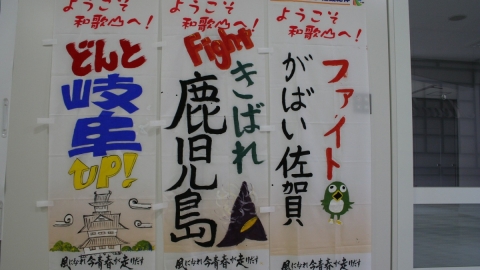 ようこそ
和歌山へ!
どんと
岐阜
UP!
風になれ 今青春が走りだす
ようこそ
和歌山へ!
Fight
きばれ
鹿児島
風になれ 今青春が走りだす
ようこそ
和歌山へ!
ファイト
がばい佐賀
風になれ 今青春が走りだす